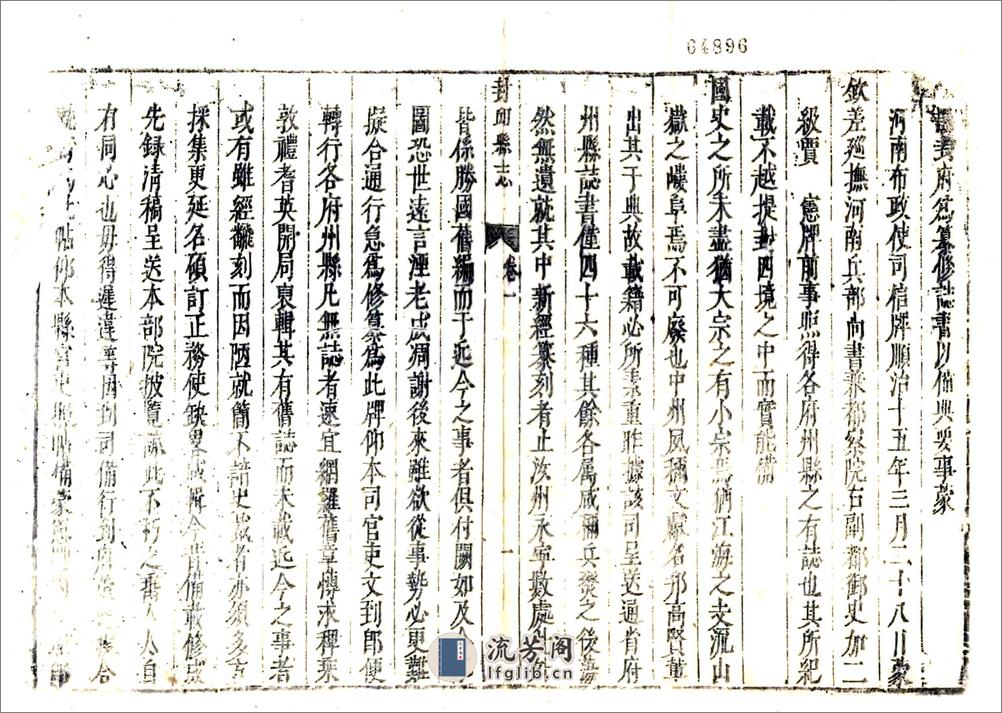 64896
封府為纂修誌書以備典要事蒙
河南布政使司信牌順治十五年三月二十八日蒙
欽差巡撫河南兵部尚書兼都察院右副都御史加二
級賈 憲牌前事照得各府州縣之有誌也其所紀
載不越提封四境之中而實能備
國史之所未盡猶大宗之有小宗焉猶江海之支流山
嶽之嶁阜焉不可廢也中州夙稱文獻名邦高賢輩
出其于典故載籍必所素重昨據該司呈送通省府
州縣誌書僅四十六種其餘各屬咸稱兵燹之後蕩
然無遺就其中新經纂刻者止汝州永寧數處
封邱縣志
卷一
一
皆係勝國舊編而于近今之事者俱付闕如及今
圖恐世遠言湮老成凋謝後來雖欲從事勢必更難
擬合通行急為修纂為此牌仰本司官吏文到即便
轉行各府州縣凡無誌者速宜網羅舊章博求稗乘
敦禮耆英開局裒輯其有舊誌而未載近今之事者
或有雖經繼刻而因陋就簡不諳史裁者亦須多方
採集更延名碩訂正務使缺略咸備今昔備載修成
先錄清稿呈送本部院披覽源此不朽之舉人人自
有同心也毋得遲違等因到司備行到府
帖仰本縣官吏照帖備蒙憲
流芳阁
lfglib.cn